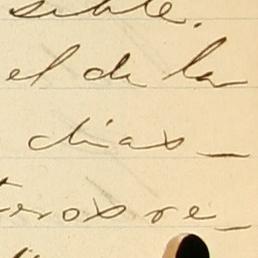 sible.
el de la
dias_
teros re_